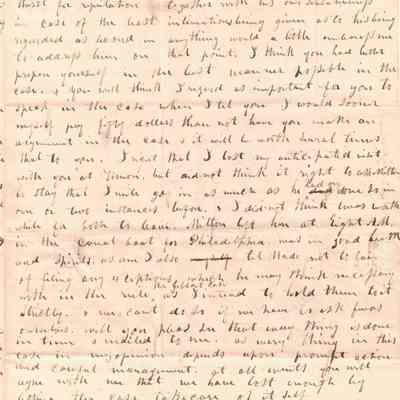 thirst for reputation together with his
in case of the least intimations being given as to his being
regarded as second in anything would a little embarrass me
to address him on that point. I think you had better
prepare yourself in the best manner possible in the
case. & you will think I regard as important for you to
speak in the case when I tell you I would sooner
myself pay fifty dollars than not have you make an
argument in the case & it will be worth several times
that to you. I regret that I lost my anticipated visit
with you at but did not think it right to ask Milton
to stay that I might go in as much as he had done so in
one or two instances before, & I did not think it was
while for both to leave. Milton left here at Eight A.M.
in the Canal boat for Philadelphia, was in good health
and spirits, as am I also tel Wade not to
of filing any exceptions, which he may think necessary
within the rule, as I intend to hold them to it
strictly. & we can't do so if we have to ask favors
ourselves. will you please see that every thing is done
in time & indited to me. as every thing in this
case in my opinion depends upon prompt action
and careful management. at all events you will
agree with me that we have lost enough by
letting the case take care of itself